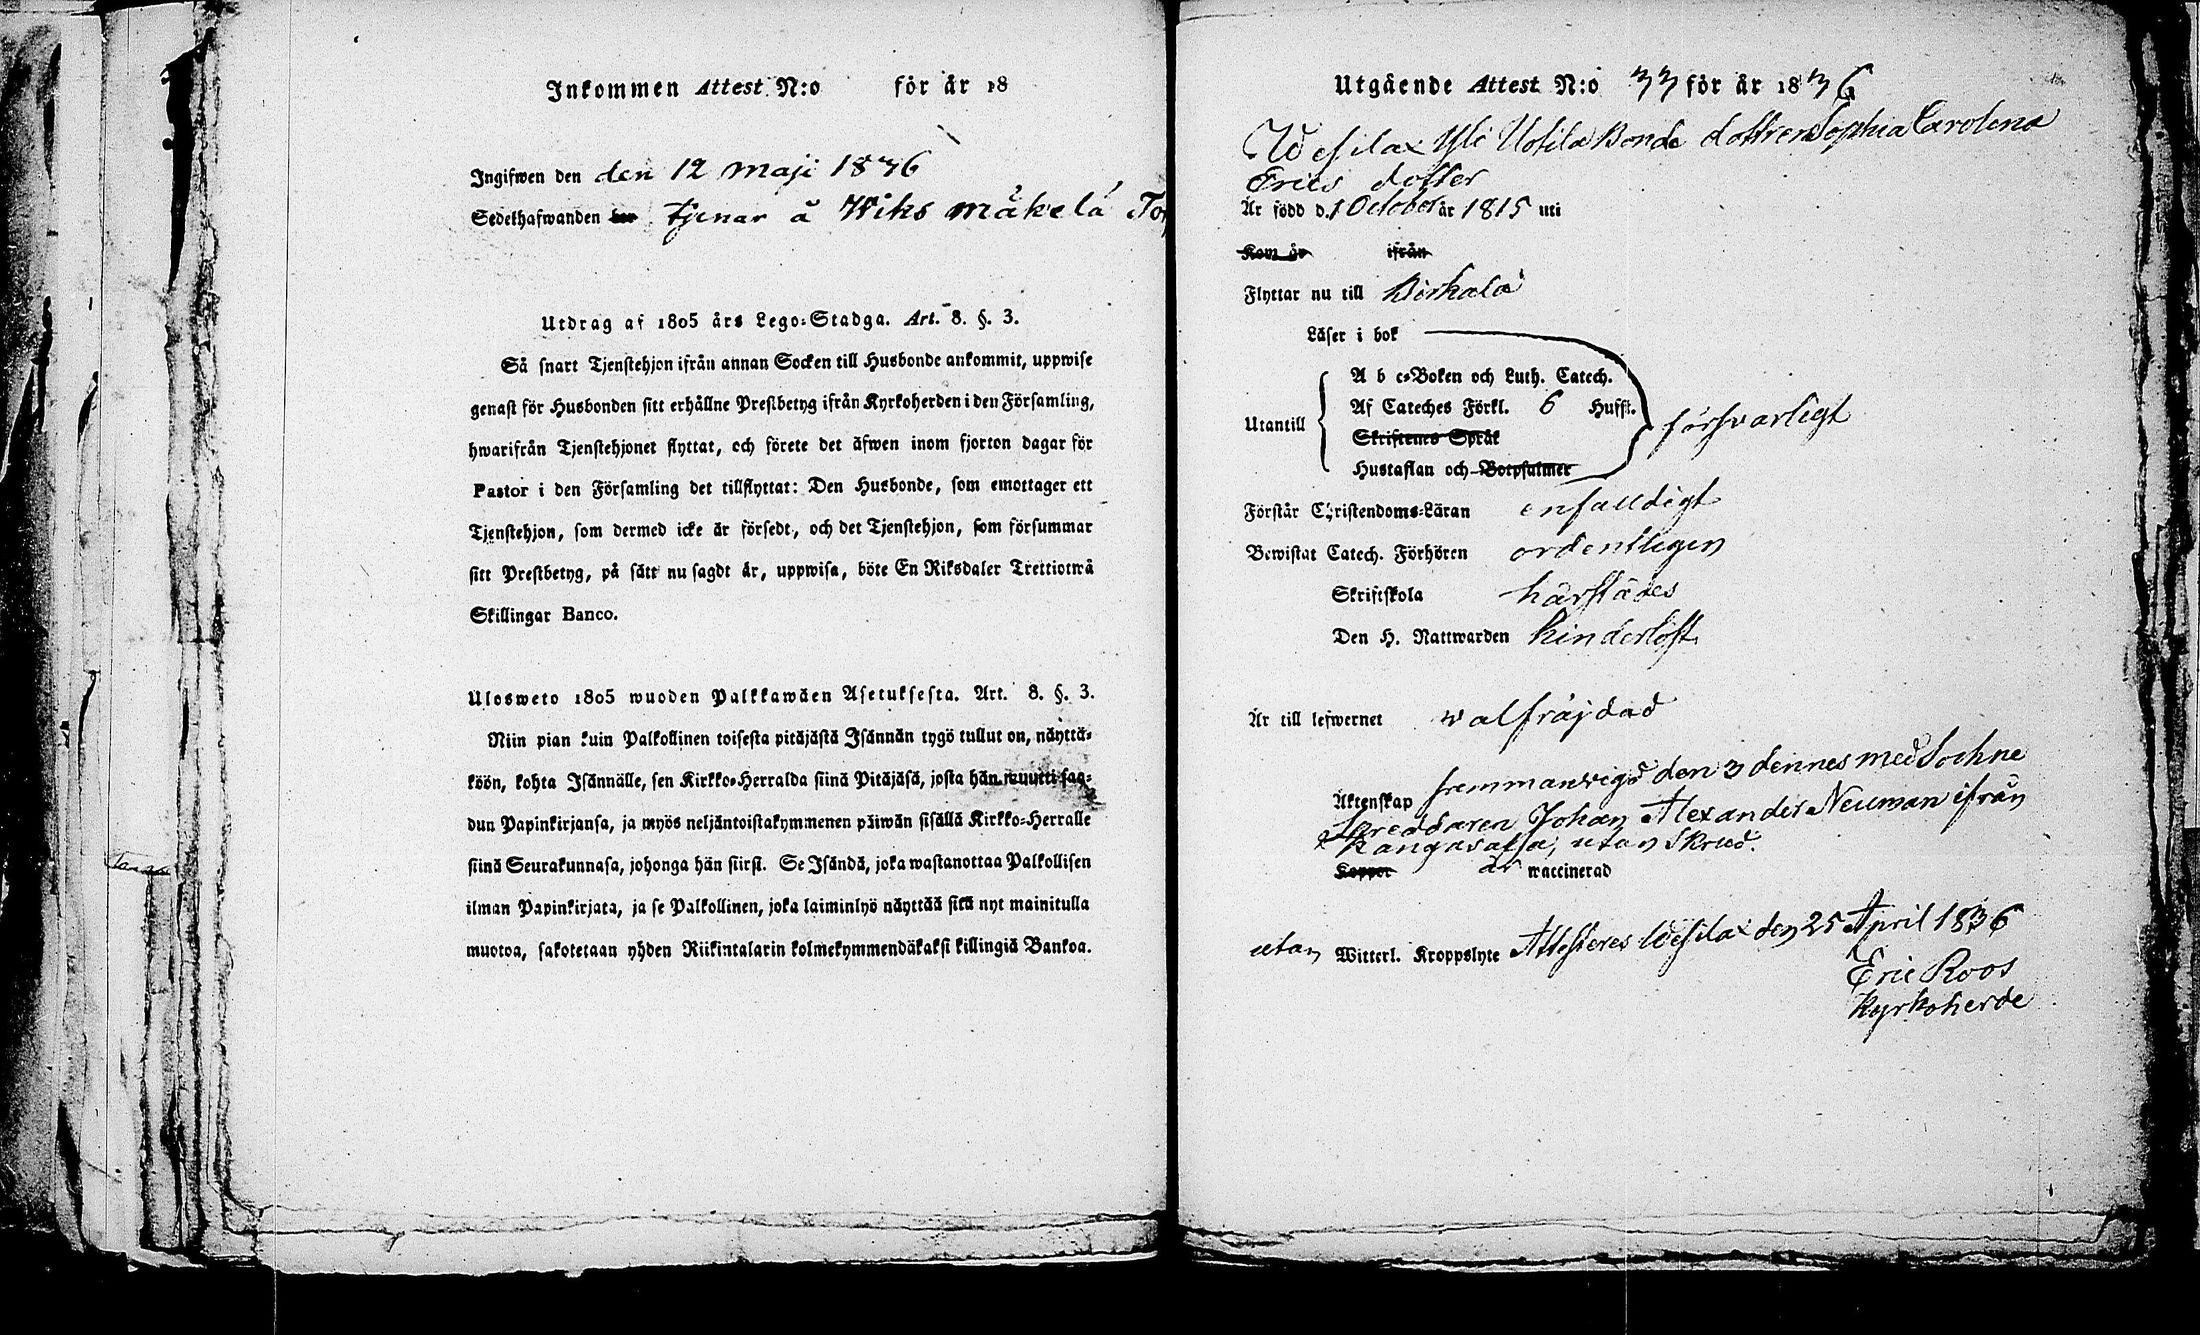 Inkommen Attest N:o för år 18
Ingifwen den den 12 maji 1836
Sedelhafwanden bor tjenar å Wiks mäkelä Tor
Utdrag af 1805 års Lego-Stadga. Art. 8. §. 3.
Så snart Tjenstehjon ifrån annan Socken till Husbonde ankommit, uppwise
genast för Husbonden sitt erhållne Prestbetyg ifrån Kyrkoherden i den Församling,
hwarifrån Tjenstehjonet flyttat, och förete det äfwen inom fjorton dagar för
Pastor i den Församling det tillflyttat: Den Husbonde, som emottager ett
Tjenstehjon, som dermed icke är försedt, och det Tjenstehjon, som försummar
sitt Prestbetyg, på sätt nu sagdt är, uppwisa, böte En Riksdaler Trettiotwå
Skillingar Banco.
Ulosweto 1805 wuoden Palkkawäen Asetuksesta. Art. 8. §. 3.
Niin pian kuin Palkollinen toisesta pitäjästä Isännän tygö tullut on, näyttä-
köön, kohta Isännälle, sen Kirkko-Herralda siinä Pitäjäsä, josta hän muutti saa-
dun Papinkirjansa, ja myös neljäntoistakymmenen päiwän sisällä Kirkko-Herralle
siinä Seurakunnasa, johonga hän siirsi. Se Isändä, joka wastanottaa Palkollisen
ilman Papinkirjata, ja se Palkollinen, joka laiminlyö näyttää sitä nyt mainitulla
muotoa, sakotetaan yhden Riikintalarin kolmekymmendäkaksi killingiä Bankoa.
Utgående Attest N:o 33 för år 1836
Wesilax Yli Uotila Bonde dottren Sophia Carolena
Erics dotter
Är född d. 1 October år 1815 uti
Kom år ifrån
Flyttar nu till Birkala
Läser i bok
A b c-Boken och Luth. Catech.
Af Cateches Förkl. 6 Hufst.
Utantill försvarligt
Skriftenes Språk
Hustaflan och Botpsalmer
Förstår Christendoms-Läran enfalldigt
Bewistat Catech. Förhören ordentligen
Skriftskola härstädes
Den H. Nattwarden hinderlöst
Är till lefwernet walfräjdad
Äktenskap fremmanvigd den 3 dennes med Sockne
Skreddaren Johan Alexander Neuman ifrån
Kangasala, utan Skrud.
Koppor är waccinerad
utan Witterl. Kroppslyte Attesteres Wesilax den 25 April 1836
Eric Roos
Kyrkoherde